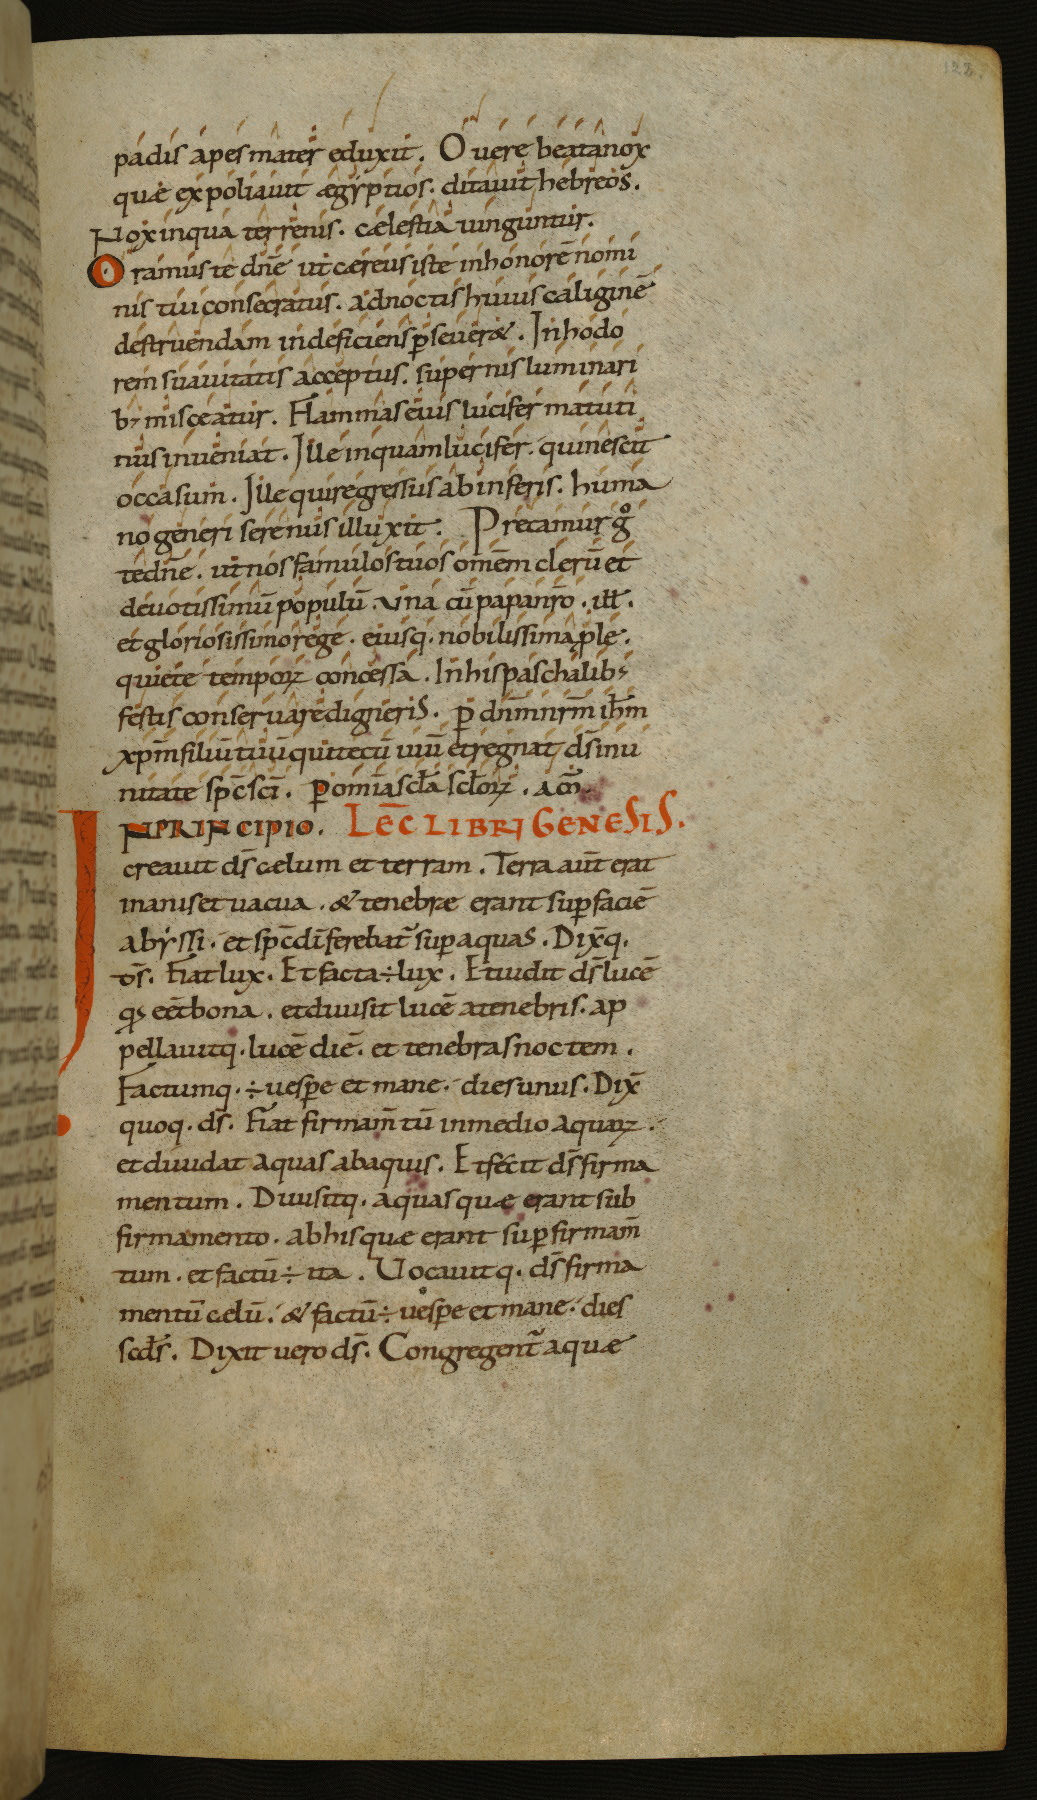 122
padis apes mater eduxit. O uere beata nox
quae expoliauit ægyptios. ditauit hebreos.
Nox in qua terrenis. cælestia iunguntur.
Oramus te dñe ut cæreus iste in honorē nomi
nis tui consecratus. ad noctis huius caliginē
destruendam indeficiens ꝑseueret. In hodo
rem suauitatis acceptus. supernis luminari
b; misceatur. Flammas eius lucifer matuti
nus inueniat. Ille inquam lucifer. qui nescit
occasum. Ille qui regressus ab inferis. huma
no generi serenus illuxit. Precamur gͦ
te dñe. ut nos famulos tuos omēm clerū et
deuotissimū populū. una cū papa nr̄o. ill̄.
et gloriosissimo rege. eiusq. nobilissima ꝓle.
quiete temporꝝ concessa. In his paschalib;
festis conseruare digneris. ꝑ dn̄m nr̄m ihm̄
xp̄m filiū tuū qui tecū uiū et regnat ds̄ in u
nitate sp̄c sc̄i. ꝑ omīa sc̄la sc̄lorꝝ. am̄.
IN PRINCIPIO. LEC̄ LIBRI GENESIS.
creauit ds̄ cælum et terram. Terra aūt erat
inanis et uacua. & tenebræ erant suꝑ faciē
abyssi. et sp̄c dī ferebat̄ suꝑ aquas. Dix̄q.
ds̄. Fiat lux. Et facta ÷ lux. Et uidit ds̄ lucē
q; eēt bona. et diuisit lucē a tenebris. ap
pellauitq. lucē diē. et tenebras noctem.
Factumq. ÷ uesꝑe et mane. dies unus. Dix̄
quoq. ds̄. Fiat firmam̄tū in medio aquarꝝ.
et diuidat aquas ab aquis. Et fecit ds̄ firma
mentum. Diuisitq. aquas quæ erant sub
firmamento. ab his quæ erant suꝑ firmam̄
tum. et factū ÷ ita. Uocauitq. ds̄ firma
mentū cælū. & factū ÷ uesꝑe et mane. dies
scds̄. Dixit uero ds̄. Congregent̄ aquæ